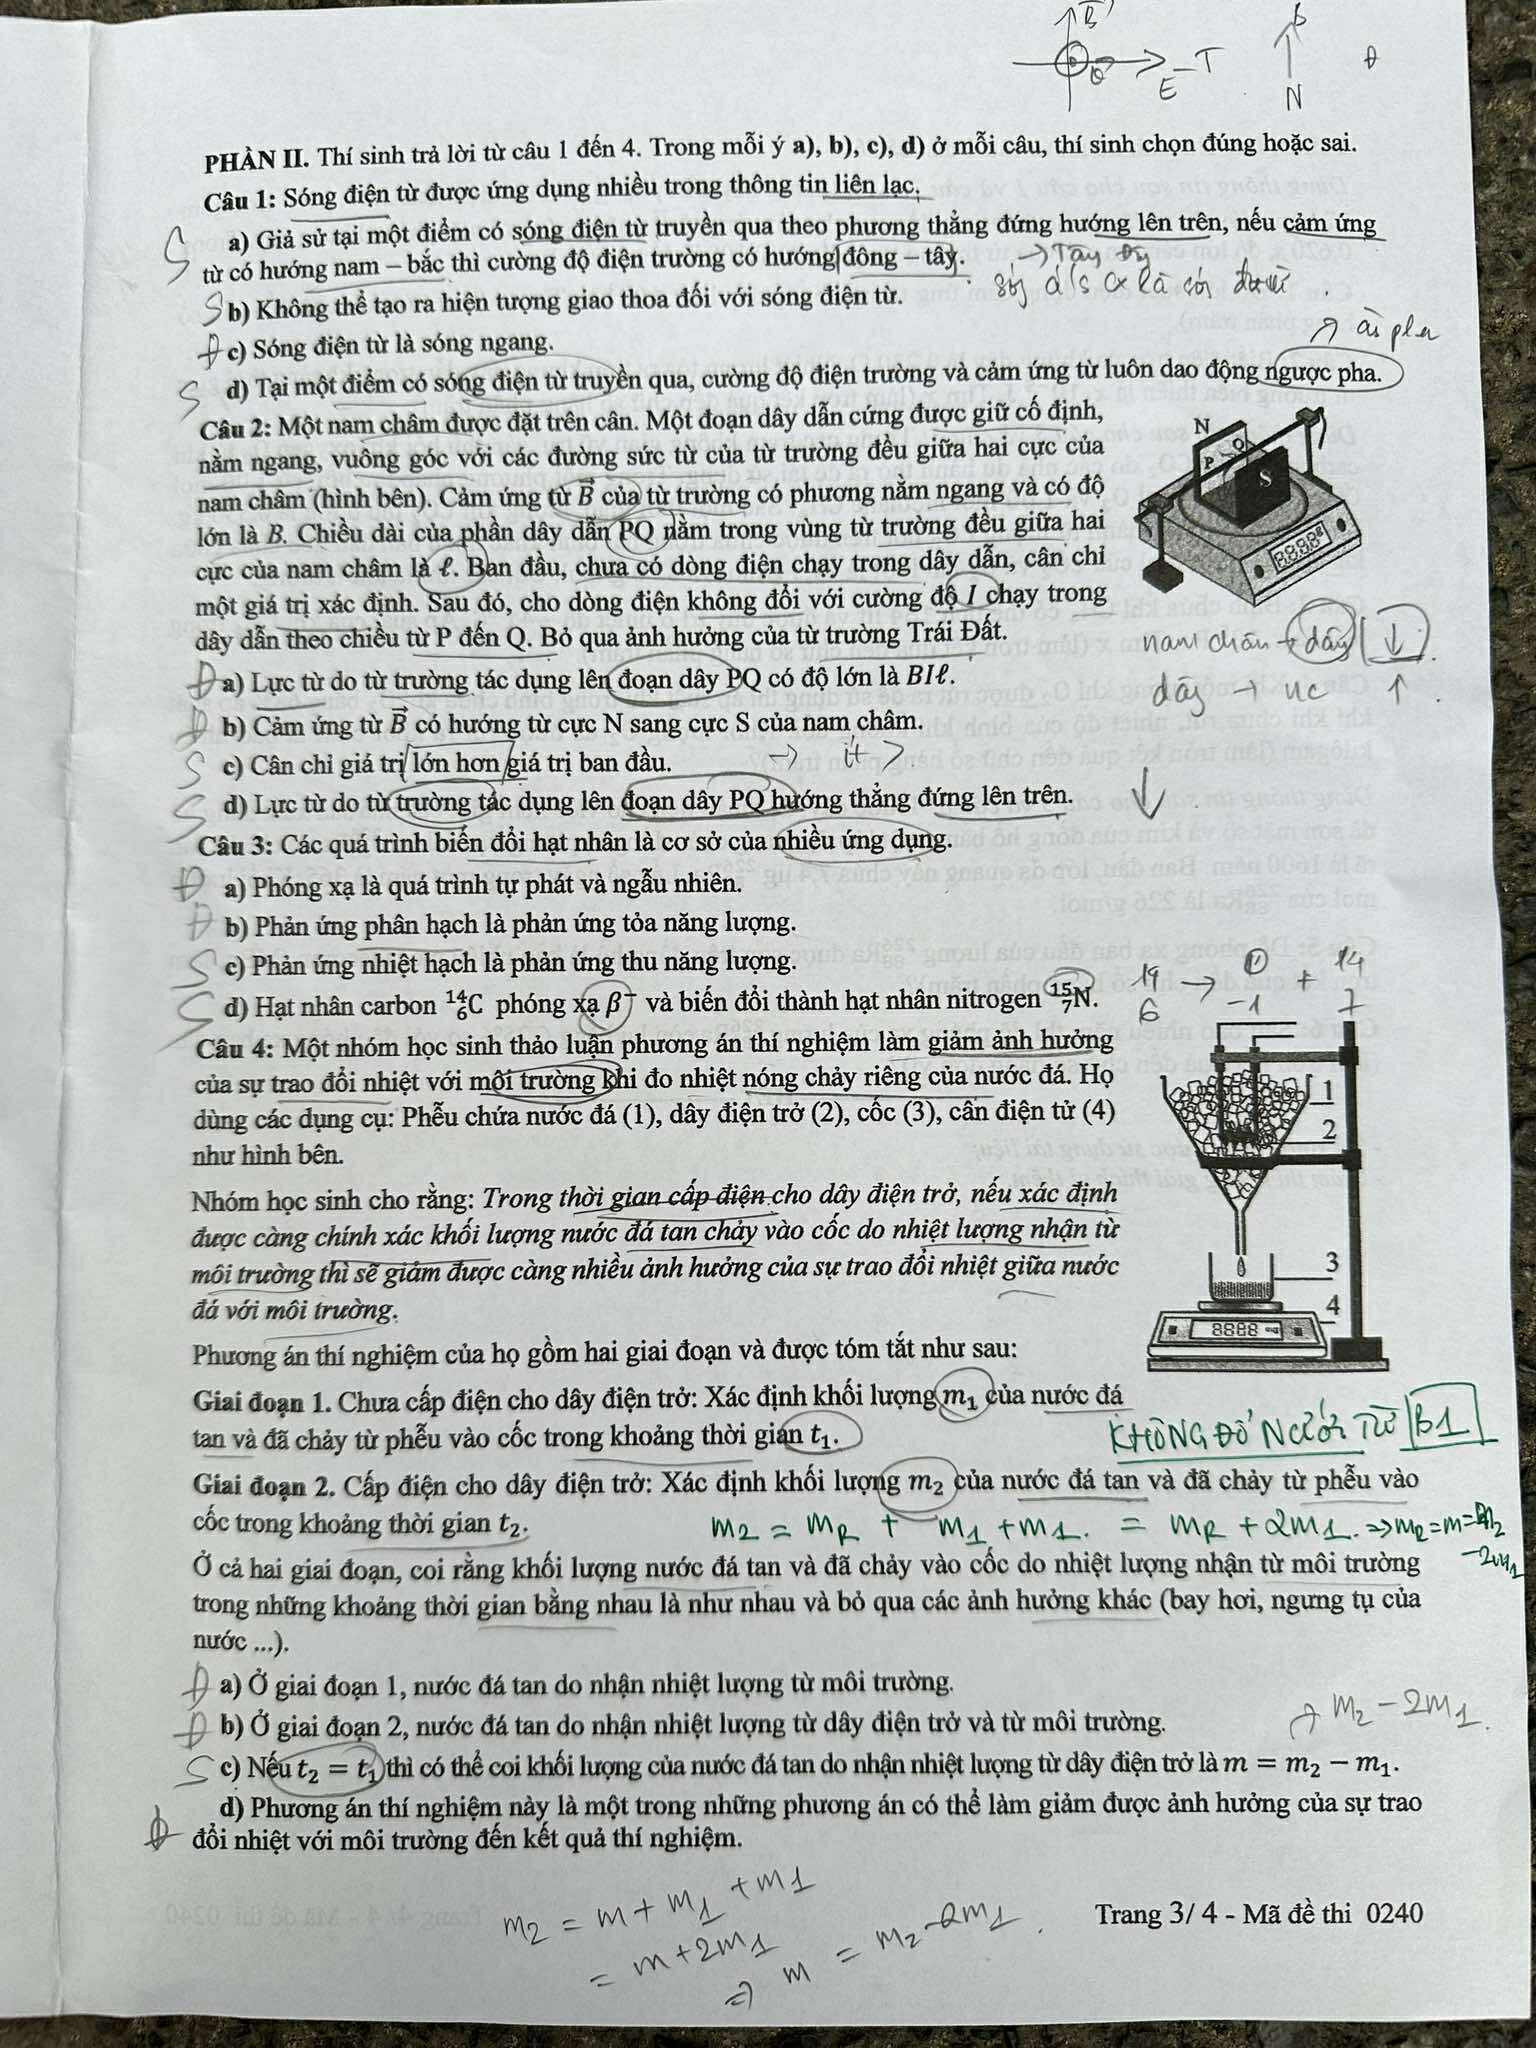 B
E
T
B
N
PHẦN II. Thí sinh trả lời từ câu 1 đến 4. Trong mỗi ý a), b), c), d) ở mỗi câu, thí sinh chọn đúng hoặc sai.
Câu 1: Sóng điện từ được ứng dụng nhiều trong thông tin liên lạc.
S a) Giả sử tại một điểm có sóng điện từ truyền qua theo phương thẳng đứng hướng lên trên, nếu cảm ứng
từ có hướng nam – bắc thì cường độ điện trường có hướng đông – tây.
S b) Không thể tạo ra hiện tượng giao thoa đối với sóng điện từ.
Đ c) Sóng điện từ là sóng ngang.
S d) Tại một điểm có sóng điện từ truyền qua, cường độ điện trường và cảm ứng từ luôn dao động ngược pha.
Câu 2: Một nam châm được đặt trên cân. Một đoạn dây dẫn cứng được giữ cố định,
nằm ngang, vuông góc với các đường sức từ của từ trường đều giữa hai cực của
nam châm (hình bên). Cảm ứng từ B⃗ của từ trường có phương nằm ngang và có độ
lớn là B. Chiều dài của phần dây dẫn PQ nằm trong vùng từ trường đều giữa hai
cực của nam châm là ℓ. Ban đầu, chưa có dòng điện chạy trong dây dẫn, cân chỉ
một giá trị xác định. Sau đó, cho dòng điện không đổi với cường độ I chạy trong
dây dẫn theo chiều từ P đến Q. Bỏ qua ảnh hưởng của từ trường Trái Đất.
N
P
Q
S
nam châm → dây ↓
dây → nc ↑
Đ a) Lực từ do từ trường tác dụng lên đoạn dây PQ có độ lớn là BIℓ.
Đ b) Cảm ứng từ B⃗ có hướng từ cực N sang cực S của nam châm.
S c) Cân chỉ giá trị lớn hơn giá trị ban đầu.
S d) Lực từ do từ trường tác dụng lên đoạn dây PQ hướng thẳng đứng lên trên. ↓
Câu 3: Các quá trình biến đổi hạt nhân là cơ sở của nhiều ứng dụng.
Đ a) Phóng xạ là quá trình tự phát và ngẫu nhiên.
Đ b) Phản ứng phân hạch là phản ứng tỏa năng lượng.
S c) Phản ứng nhiệt hạch là phản ứng thu năng lượng.
S d) Hạt nhân carbon ¹⁴₆C phóng xạ β⁻ và biến đổi thành hạt nhân nitrogen ¹⁵₇N.
14 → 0 + 14
6 -1 7
Câu 4: Một nhóm học sinh thảo luận phương án thí nghiệm làm giảm ảnh hưởng
của sự trao đổi nhiệt với môi trường khi đo nhiệt nóng chảy riêng của nước đá. Họ
dùng các dụng cụ: Phễu chứa nước đá (1), dây điện trở (2), cốc (3), cân điện tử (4)
như hình bên.
1
2
3
4
Nhóm học sinh cho rằng: Trong thời gian cấp điện cho dây điện trở, nếu xác định
được càng chính xác khối lượng nước đá tan chảy vào cốc do nhiệt lượng nhận từ
môi trường thì sẽ giảm được càng nhiều ảnh hưởng của sự trao đổi nhiệt giữa nước
đá với môi trường.
Phương án thí nghiệm của họ gồm hai giai đoạn và được tóm tắt như sau:
Giai đoạn 1. Chưa cấp điện cho dây điện trở: Xác định khối lượng m₁ của nước đá
tan và đã chảy từ phễu vào cốc trong khoảng thời gian t₁.
KHÔNG ĐỔ NƯỚC TỪ B1
Giai đoạn 2. Cấp điện cho dây điện trở: Xác định khối lượng m₂ của nước đá tan và đã chảy từ phễu vào
cốc trong khoảng thời gian t₂.
m₂ = mR + m₁ + m₁. = mR + 2m₁. ⇒ mR = m = m₂
-2m₁
Ở cả hai giai đoạn, coi rằng khối lượng nước đá tan và đã chảy vào cốc do nhiệt lượng nhận từ môi trường
trong những khoảng thời gian bằng nhau là như nhau và bỏ qua các ảnh hưởng khác (bay hơi, ngưng tụ của
nước ...).
Đ a) Ở giai đoạn 1, nước đá tan do nhận nhiệt lượng từ môi trường.
Đ b) Ở giai đoạn 2, nước đá tan do nhận nhiệt lượng từ dây điện trở và từ môi trường.
→ m₂ - 2m₁.
S c) Nếu t₂ = t₁ thì có thể coi khối lượng của nước đá tan do nhận nhiệt lượng từ dây điện trở là m = m₂ − m₁.
Đ d) Phương án thí nghiệm này là một trong những phương án có thể làm giảm được ảnh hưởng của sự trao
đổi nhiệt với môi trường đến kết quả thí nghiệm.
m₂ = m + m₁ + m₁
= m + 2m₁
⇒ m = m₂ - 2m₁.
Trang 3/ 4 - Mã đề thi 0240